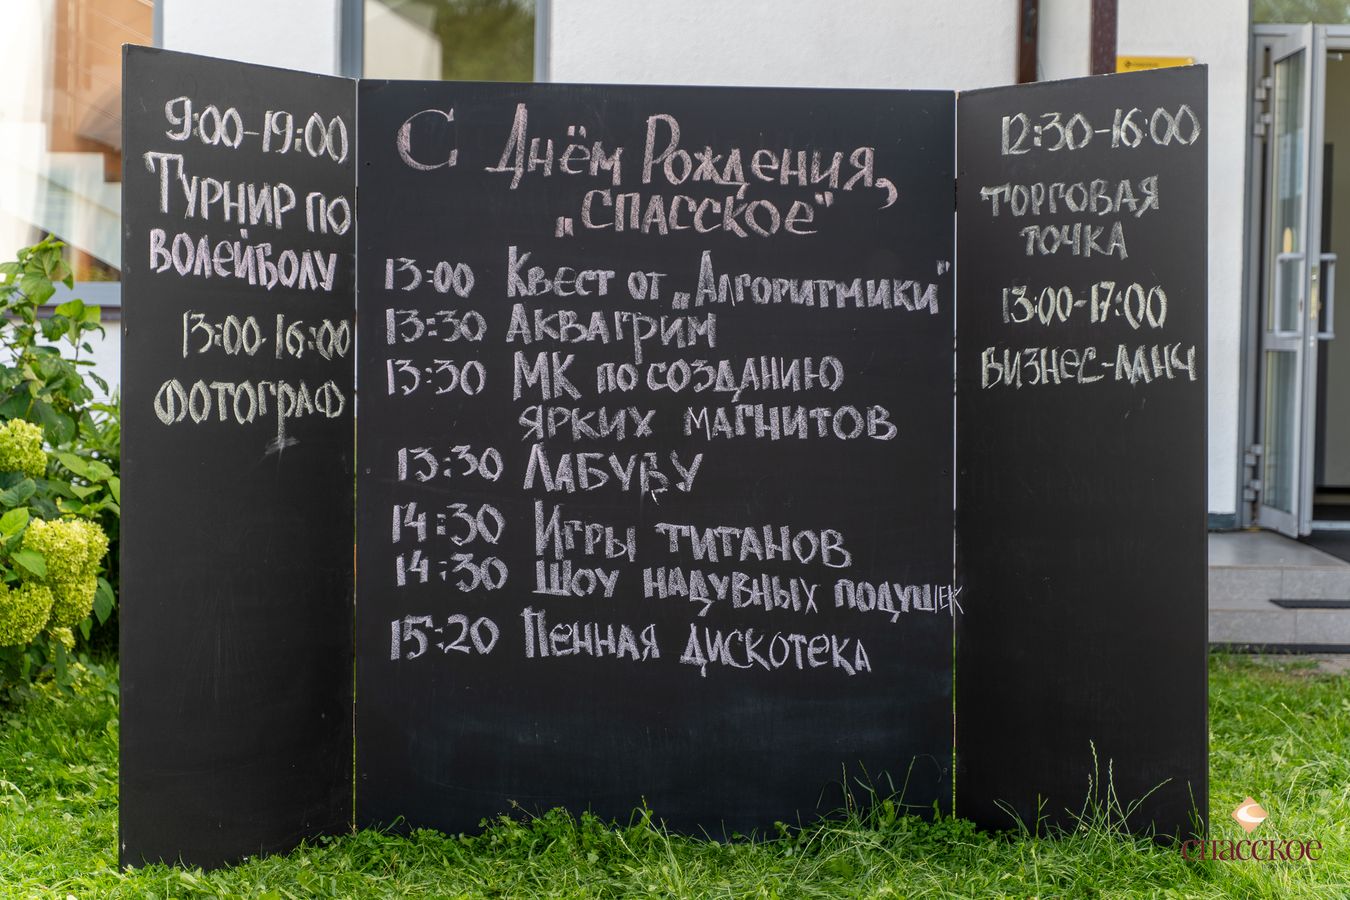 9:00-19:00
Турнир по
волейболу
13:00-16:00
Фотограф
С Днём Рождения,
„Спасское"
13:00 Квест от „Алгоритмики"
13:30 Аквагрим
13:30 МК по созданию
ярких магнитов
13:30 Лабубу
14:30 Игры титанов
14:30 Шоу надувных подушек
15:20 Пенная дискотека
12:30-16:00
Торговая
точка
13:00-17:00
Бизнес-ланч
спасское